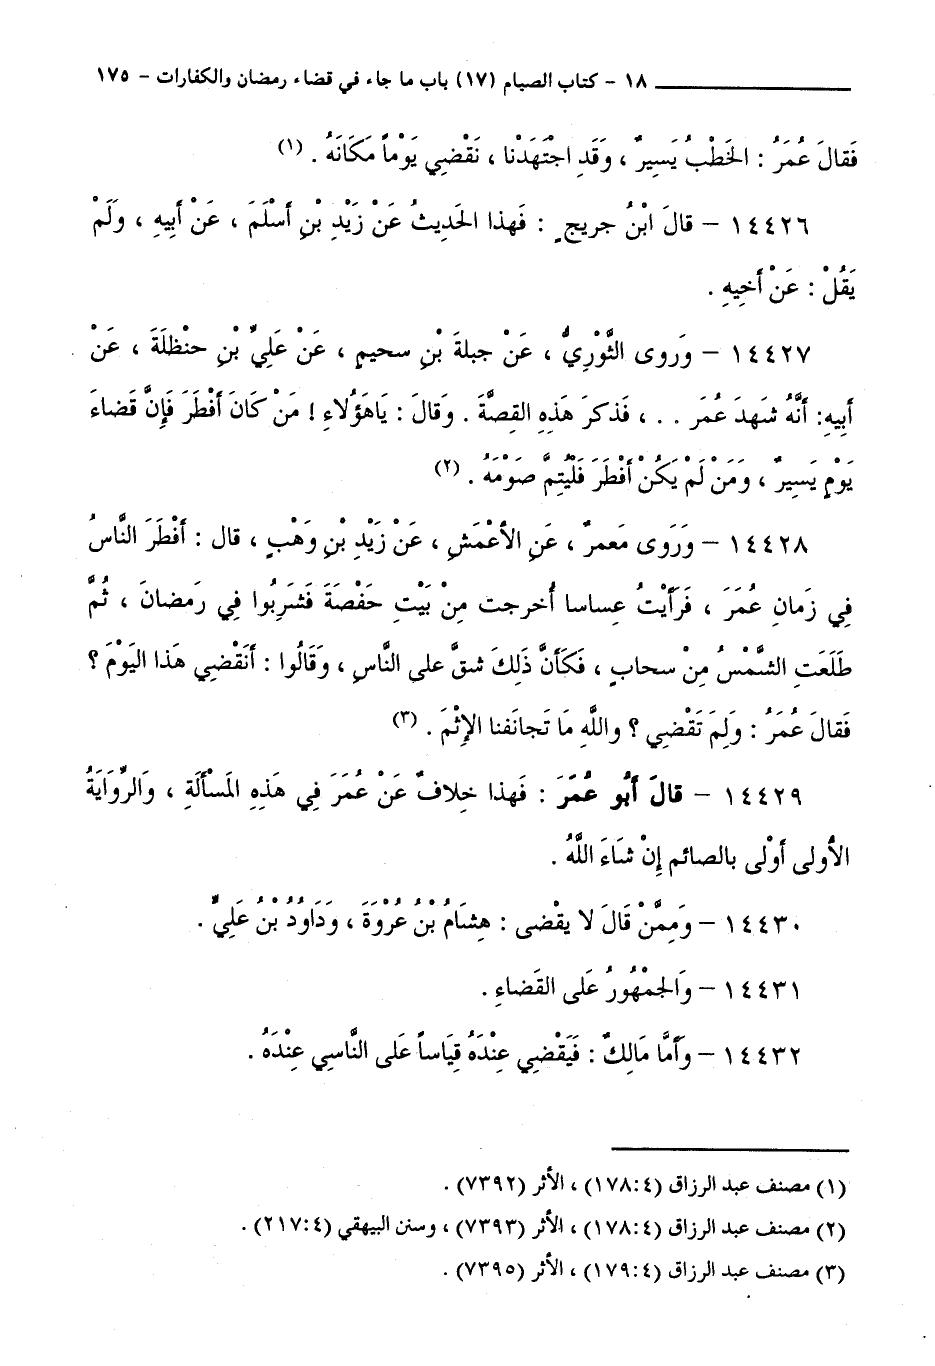 ١٨ - كتاب الصيام (١٧) باب ما جاء في قضاء رمضان والكفارات - ١٧٥
فَقالَ عُمَرُ : الخَطْبُ يَسِيرٌ ، وَقَدِ اجْتَهَدْنا ، نَقْضِي يَوْماً مَكَانَهُ . (١)
١٤٤٢٦ - قالَ ابْنُ جريجٍ : فَهذا الحَدِيثُ عَنْ زَيْدِ بْنِ أَسْلَمَ ، عَنْ أَبِيهِ ، وَلَمْ
يَقُلْ : عَنْ أَخِيهِ .
١٤٤٢٧ - وَروى الثَّوْرِيُّ ، عَنْ جبلةَ بْنِ سحيمٍ ، عَنْ عَلِيِّ بْنِ حنْظلَةَ ، عَنْ
أَبِيهِ: أَنَّهُ شهدَ عُمَرَ . . ، فَذكرَ هَذِهِ القِصَّةَ . وَقالَ : يَاهَؤُلاءِ ! مَنْ كَانَ أَفْطَرَ فَإِنَّ قَضاءَ
يَوْمٍ يَسِيرٌ ، وَمَنْ لَمْ يَكُنْ أَفْطَرَ فَلْيُتِمَّ صَوْمَهُ . (٢)
١٤٤٢٨ - وَرَوى مَعمرٌ ، عَنِ الأَعْمَشِ ، عَنْ زَيْدِ بْنِ وَهْبٍ ، قال : أَفْطَرَ النَّاسُ
فِي زَمانِ عُمَرَ ، فَرَأَيْتُ عِساسا أُخرجت مِنْ بَيْتِ حَفْصَةَ فَشَرِبُوا فِي رَمضانَ ، ثُمَّ
طَلَعَتِ الشَّمْسُ مِنْ سحابٍ ، فَكَأَنَّ ذَلِكَ شقَّ على النَّاسِ ، وَقَالُوا : أَنَقْضِي هَذا اليَوْمَ ؟
فَقالَ عُمَرُ : وَلِمَ نَقْضِي ؟ واللَّهِ مَا تَجانَفنا الإِثْمَ . (٣)
١٤٤٢٩ - قالَ أَبُو عُمَرَ : فَهذا خِلافٌ عَنْ عُمَرَ فِي هَذِهِ المَسأَلَةِ ، وَالرِّوَايَةُ
الأُولى أَوْلى بالصائم إِنْ شَاءَ اللَّهُ .
١٤٤٣٠ - وَمِمَّنْ قَالَ لا يقْضى : هِشامُ بْنُ عُرْوَةَ ، وَدَاوُدُ بْنُ عَلِيٍّ .
١٤٤٣١ - وَالجمْهُورُ عَلى القَضاءِ .
١٤٤٣٢ - وأَمَّا مَالِكٌ : فَيَقْضِي عِنْدَهُ قِيَاساً عَلى النَّاسِي عِنْدَهُ .
(١) مصنف عبد الرزاق (٤:١٧٨) ، الأثر (٧٣٩٢) .
(٢) مصنف عبد الرزاق (٤:١٧٨) ، الأثر (٧٣٩٣) ، وسنن البيهقي (٤:٢١٧) .
(٣) مصنف عبد الرزاق (٤:١٧٩) ، الأثر (٧٣٩٥) .